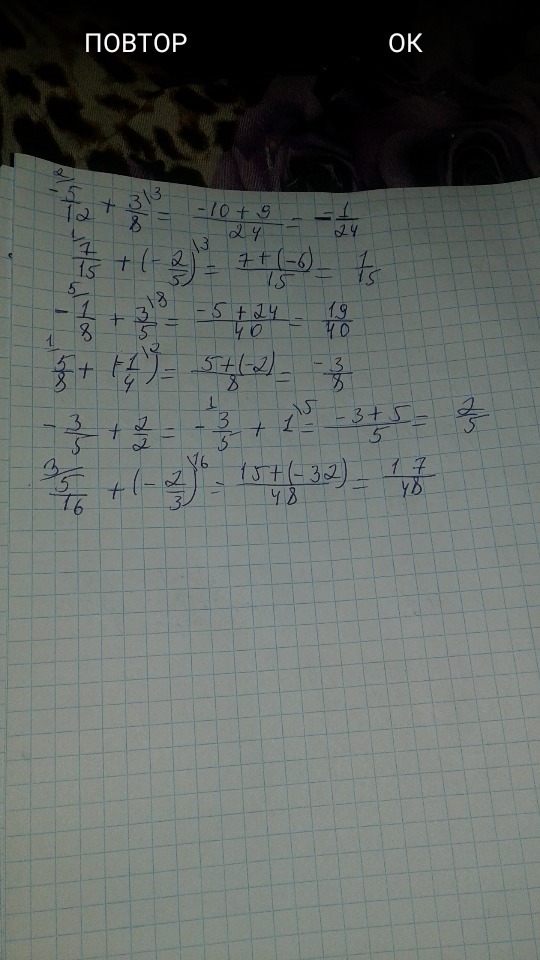 ПОВТОР ОК
2/ -5/12 + 3/8 \3 = -10+9/24 = -1/24
1/ 7/15 + (-2/5) \3 = 7+(-6)/15 = 1/15
5/ -1/8 + 3/5 \8 = -5+24/40 = 19/40
1/ 5/8 + (-1/4) \2 = 5+(-2)/8 = -3/8
-3/5 + 2/2 = - 1/ 3/5 + 1 \5 = -3+5/5 = 2/5
3/ 5/16 + (-2/3) \16 = 15+(-32)/48 = 17/48